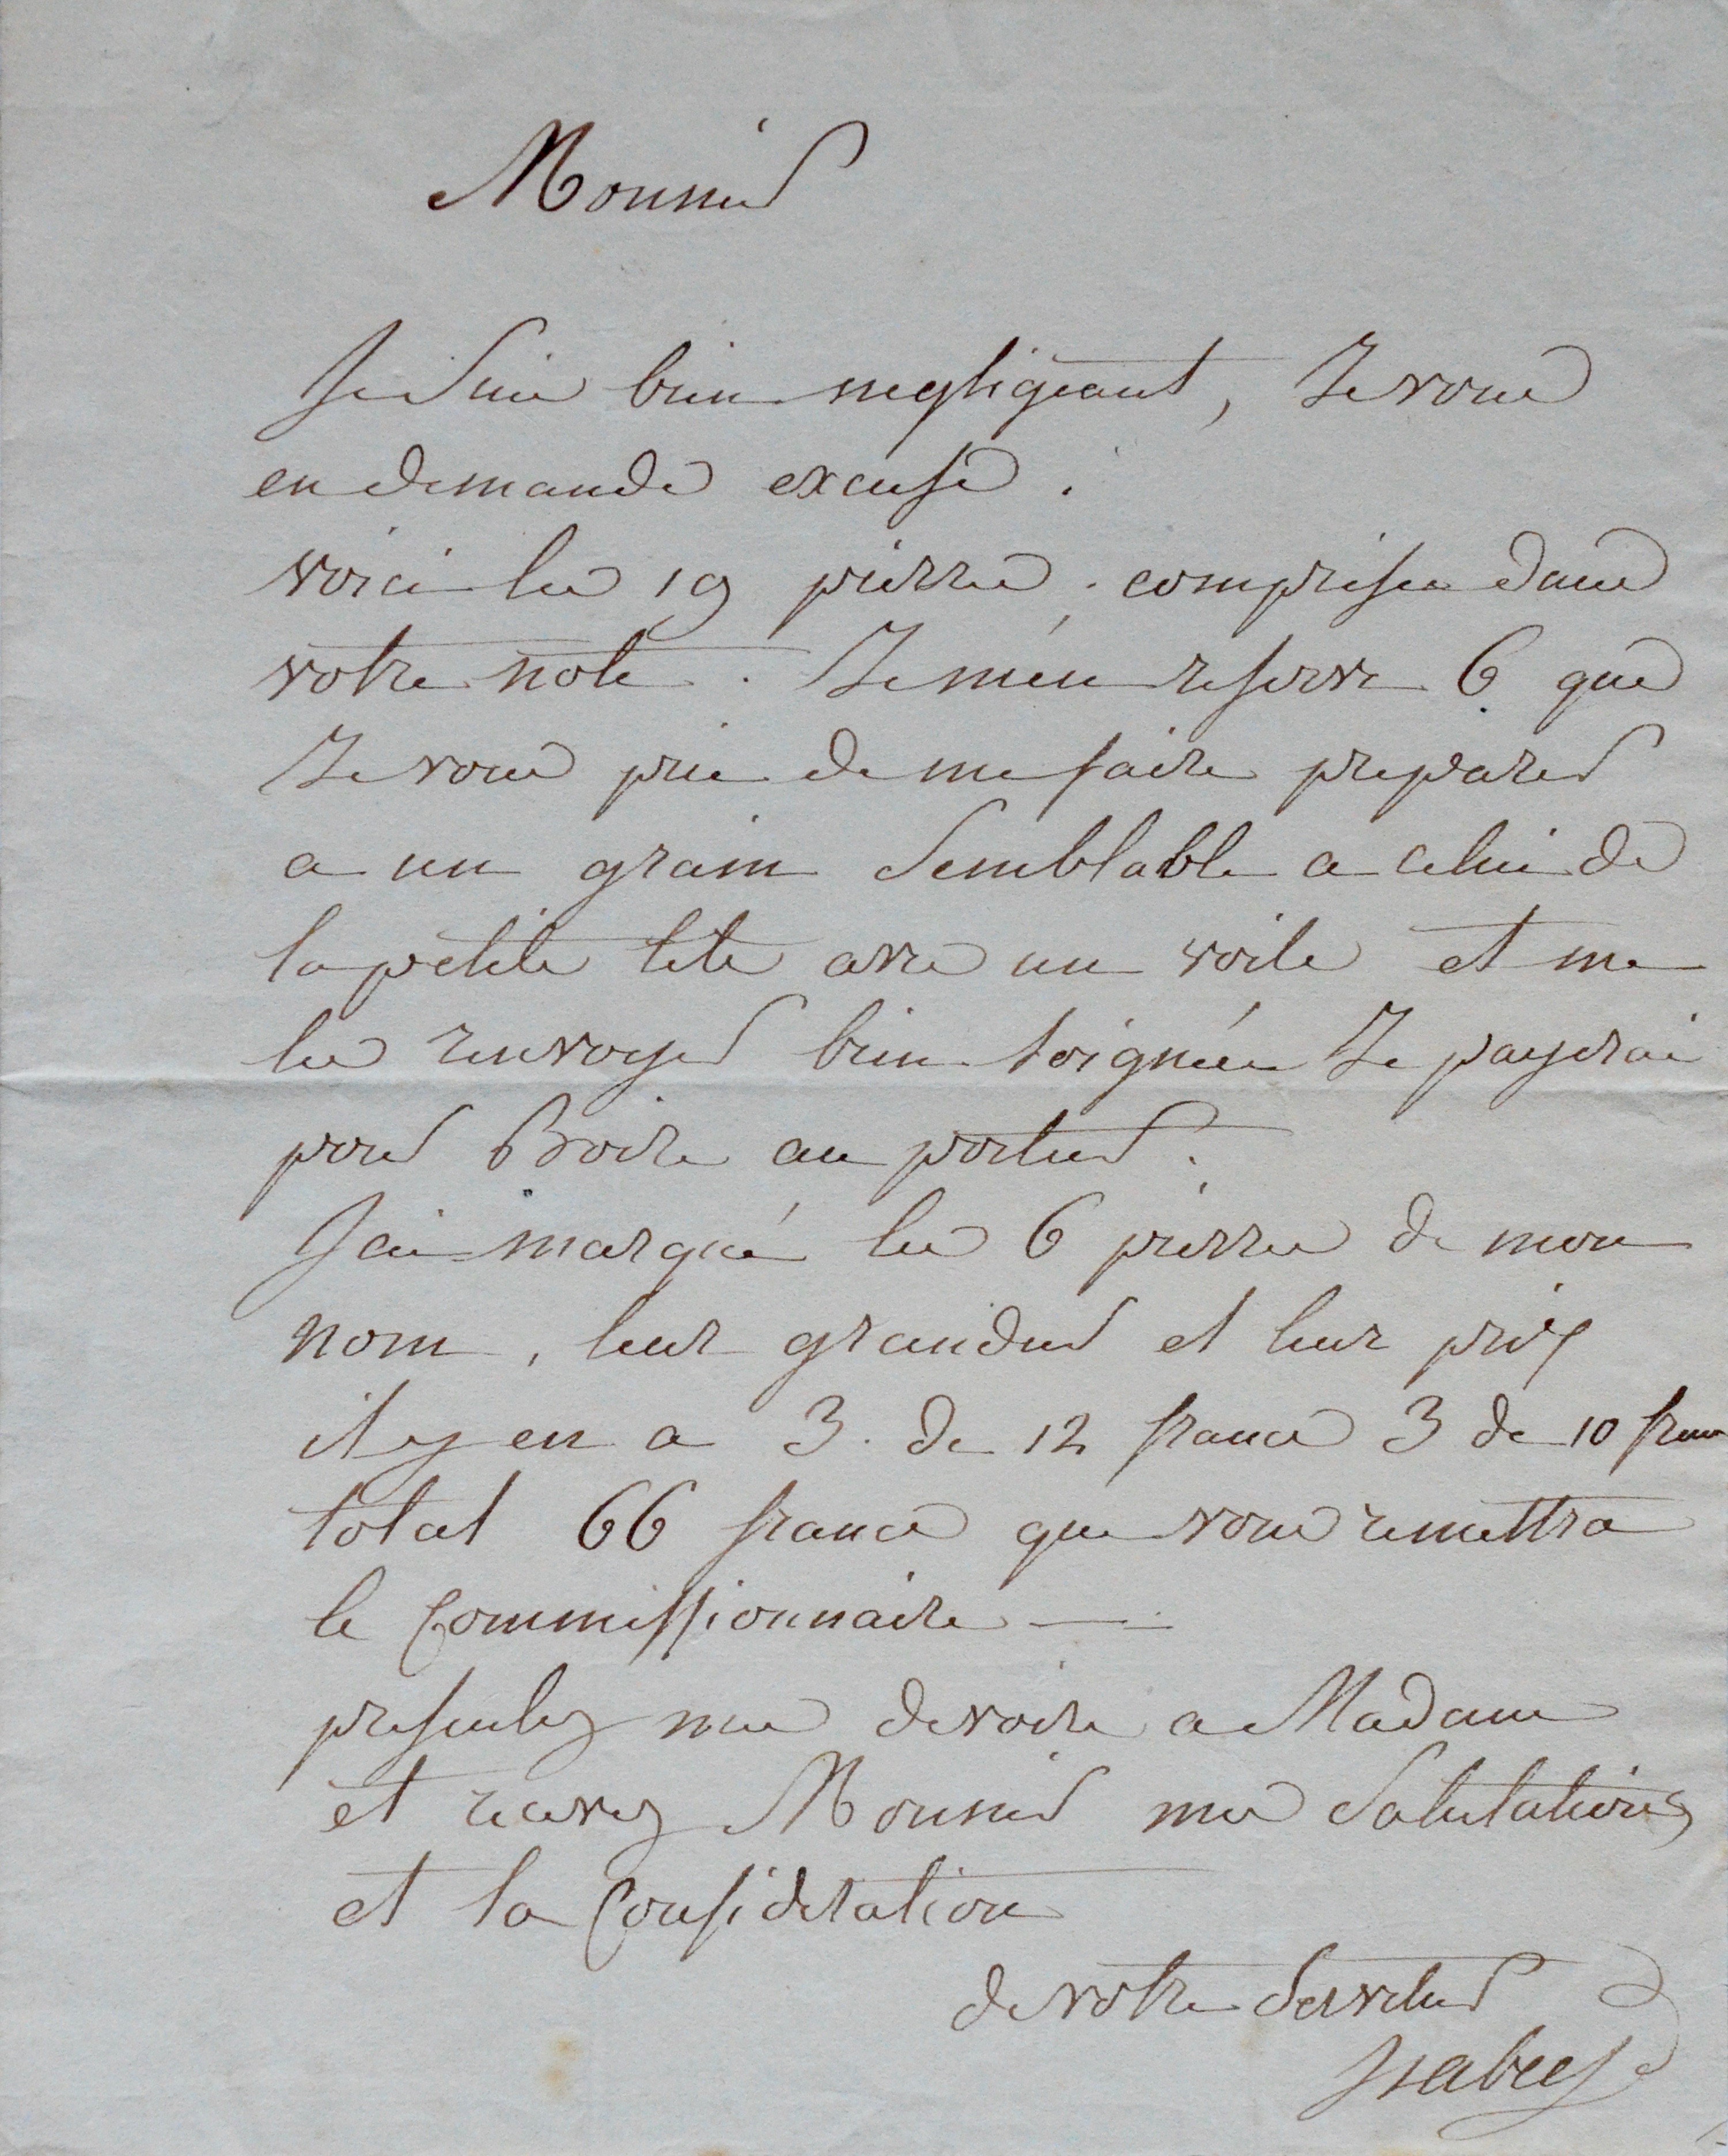 Monsieur
Je suis bien negligeant, Je vous
en demande excuse.
voici les 19 pierres. comprises dans
votre note. Je m'en reserve 6 que
Je vous prie de me faire preparer
a un grain semblable a celui de
la petite tete avec un voile et me
les renvoyer bien soignées Je payerai
pour Boire au porteur.
J'ai marqué les 6 pierres de mon
nom, leur grandeur et leur prix
il y en a 3. de 12 francs 3 de 10 francs
total 66 francs que vous remettra
le Commissionnaire —
presentez mes devoirs a Madame
et recevez Monsieur mes Salutations
et la Consideration
de votre Serviteur
Isabey